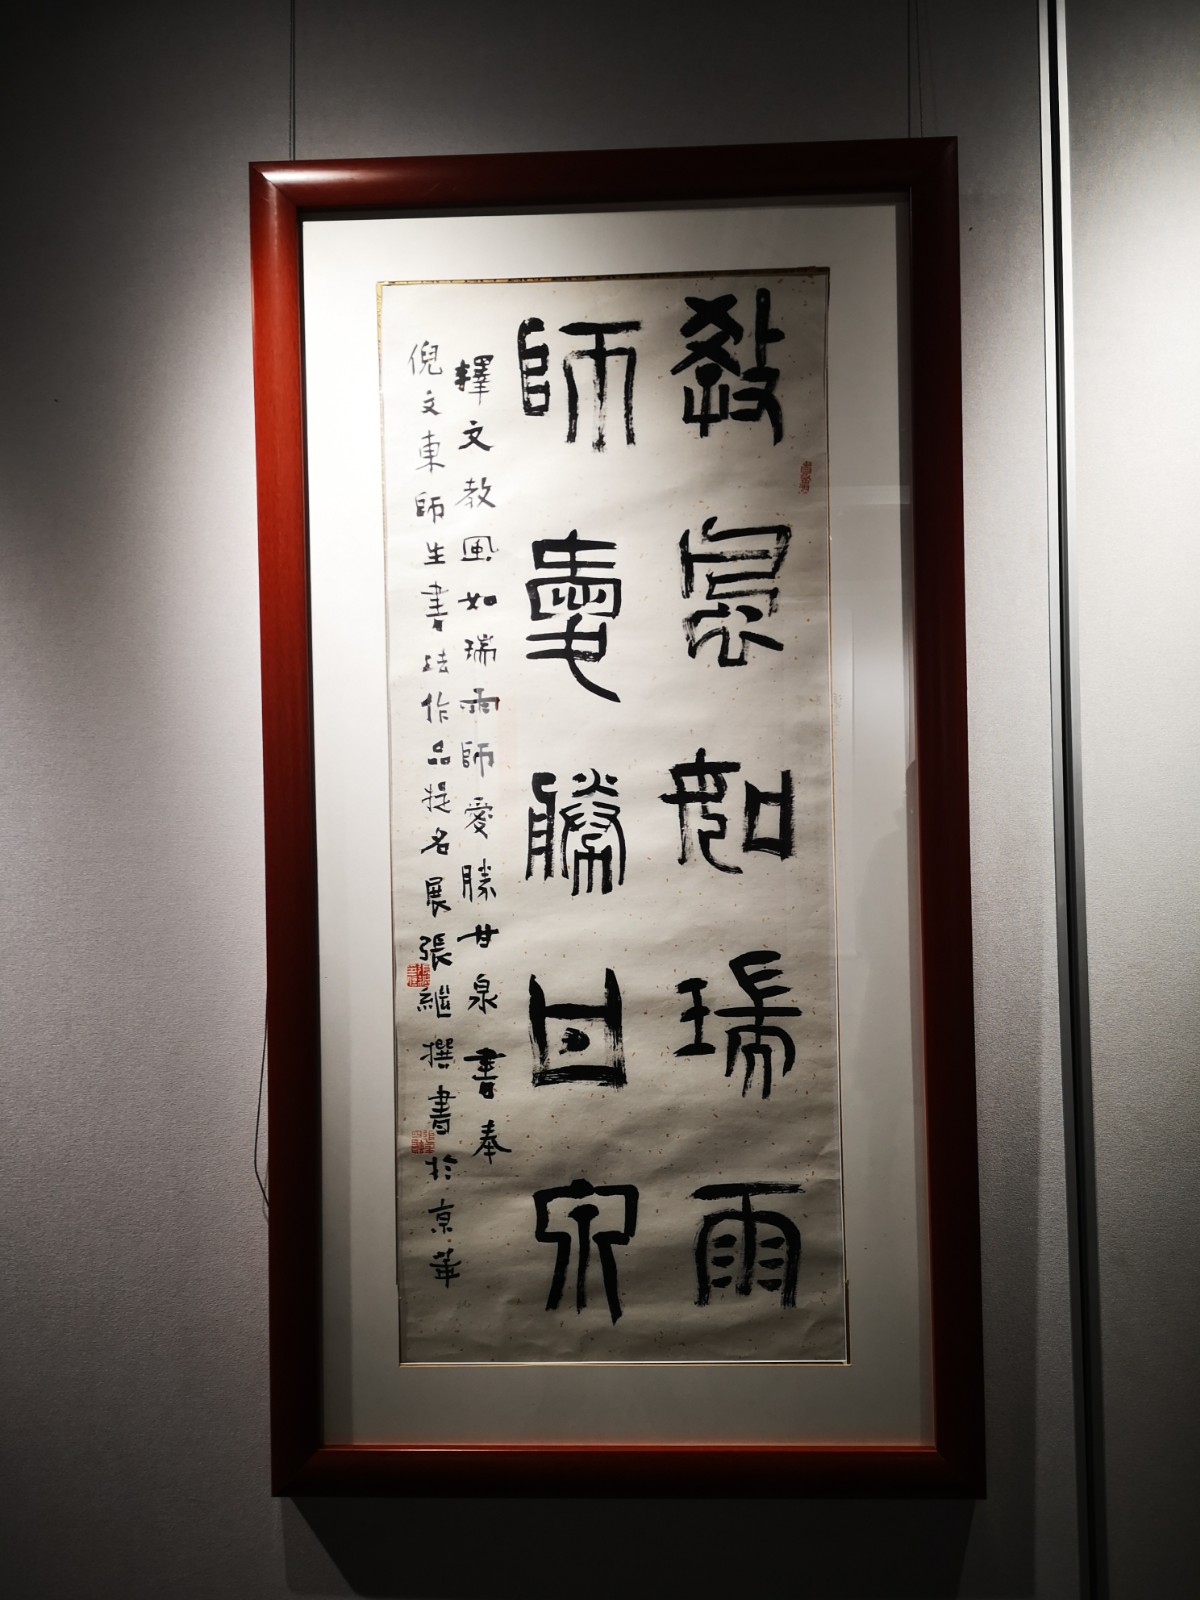 教風如瑞雨
師愛勝甘泉
釋文教風如瑞雨師愛勝甘泉 書奉
倪文東師生書法作品提名展張繼撰書於京華